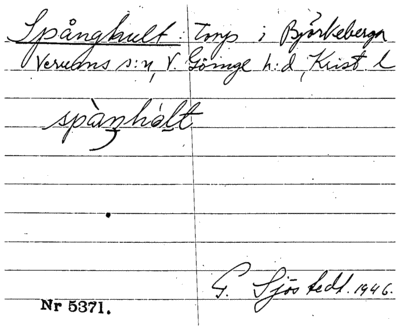 Spånghult: Torp i Björkeberga
Verums s:n, V. Göinge h:d, Krist. l
spàŋhólt
G. Sjöstedt. 1946.
Nr 5371.